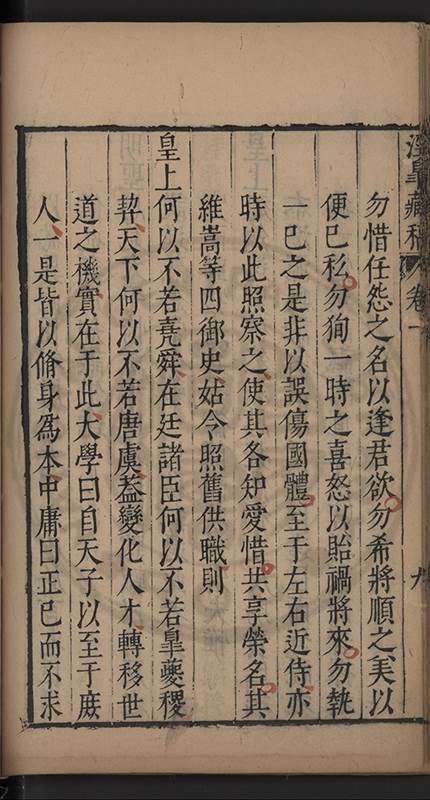 勿惜任怨之名以逢君欲勿希將順之美以
便已私勿狥一時之喜怒以貽禍將來勿執
一已之是非以誤傷國體至于左右近侍亦
時以此照察之使其各知愛惜共享榮名其
維嵩等四御史姑令照舊供職則
皇上何以不若堯舜在廷諸臣何以不若臯夔稷
契天下何以不若唐虞葢變化人才轉移世
道之機實在于此大學曰自天子以至于庻
人一是皆以脩身為本中庸曰正已而不求